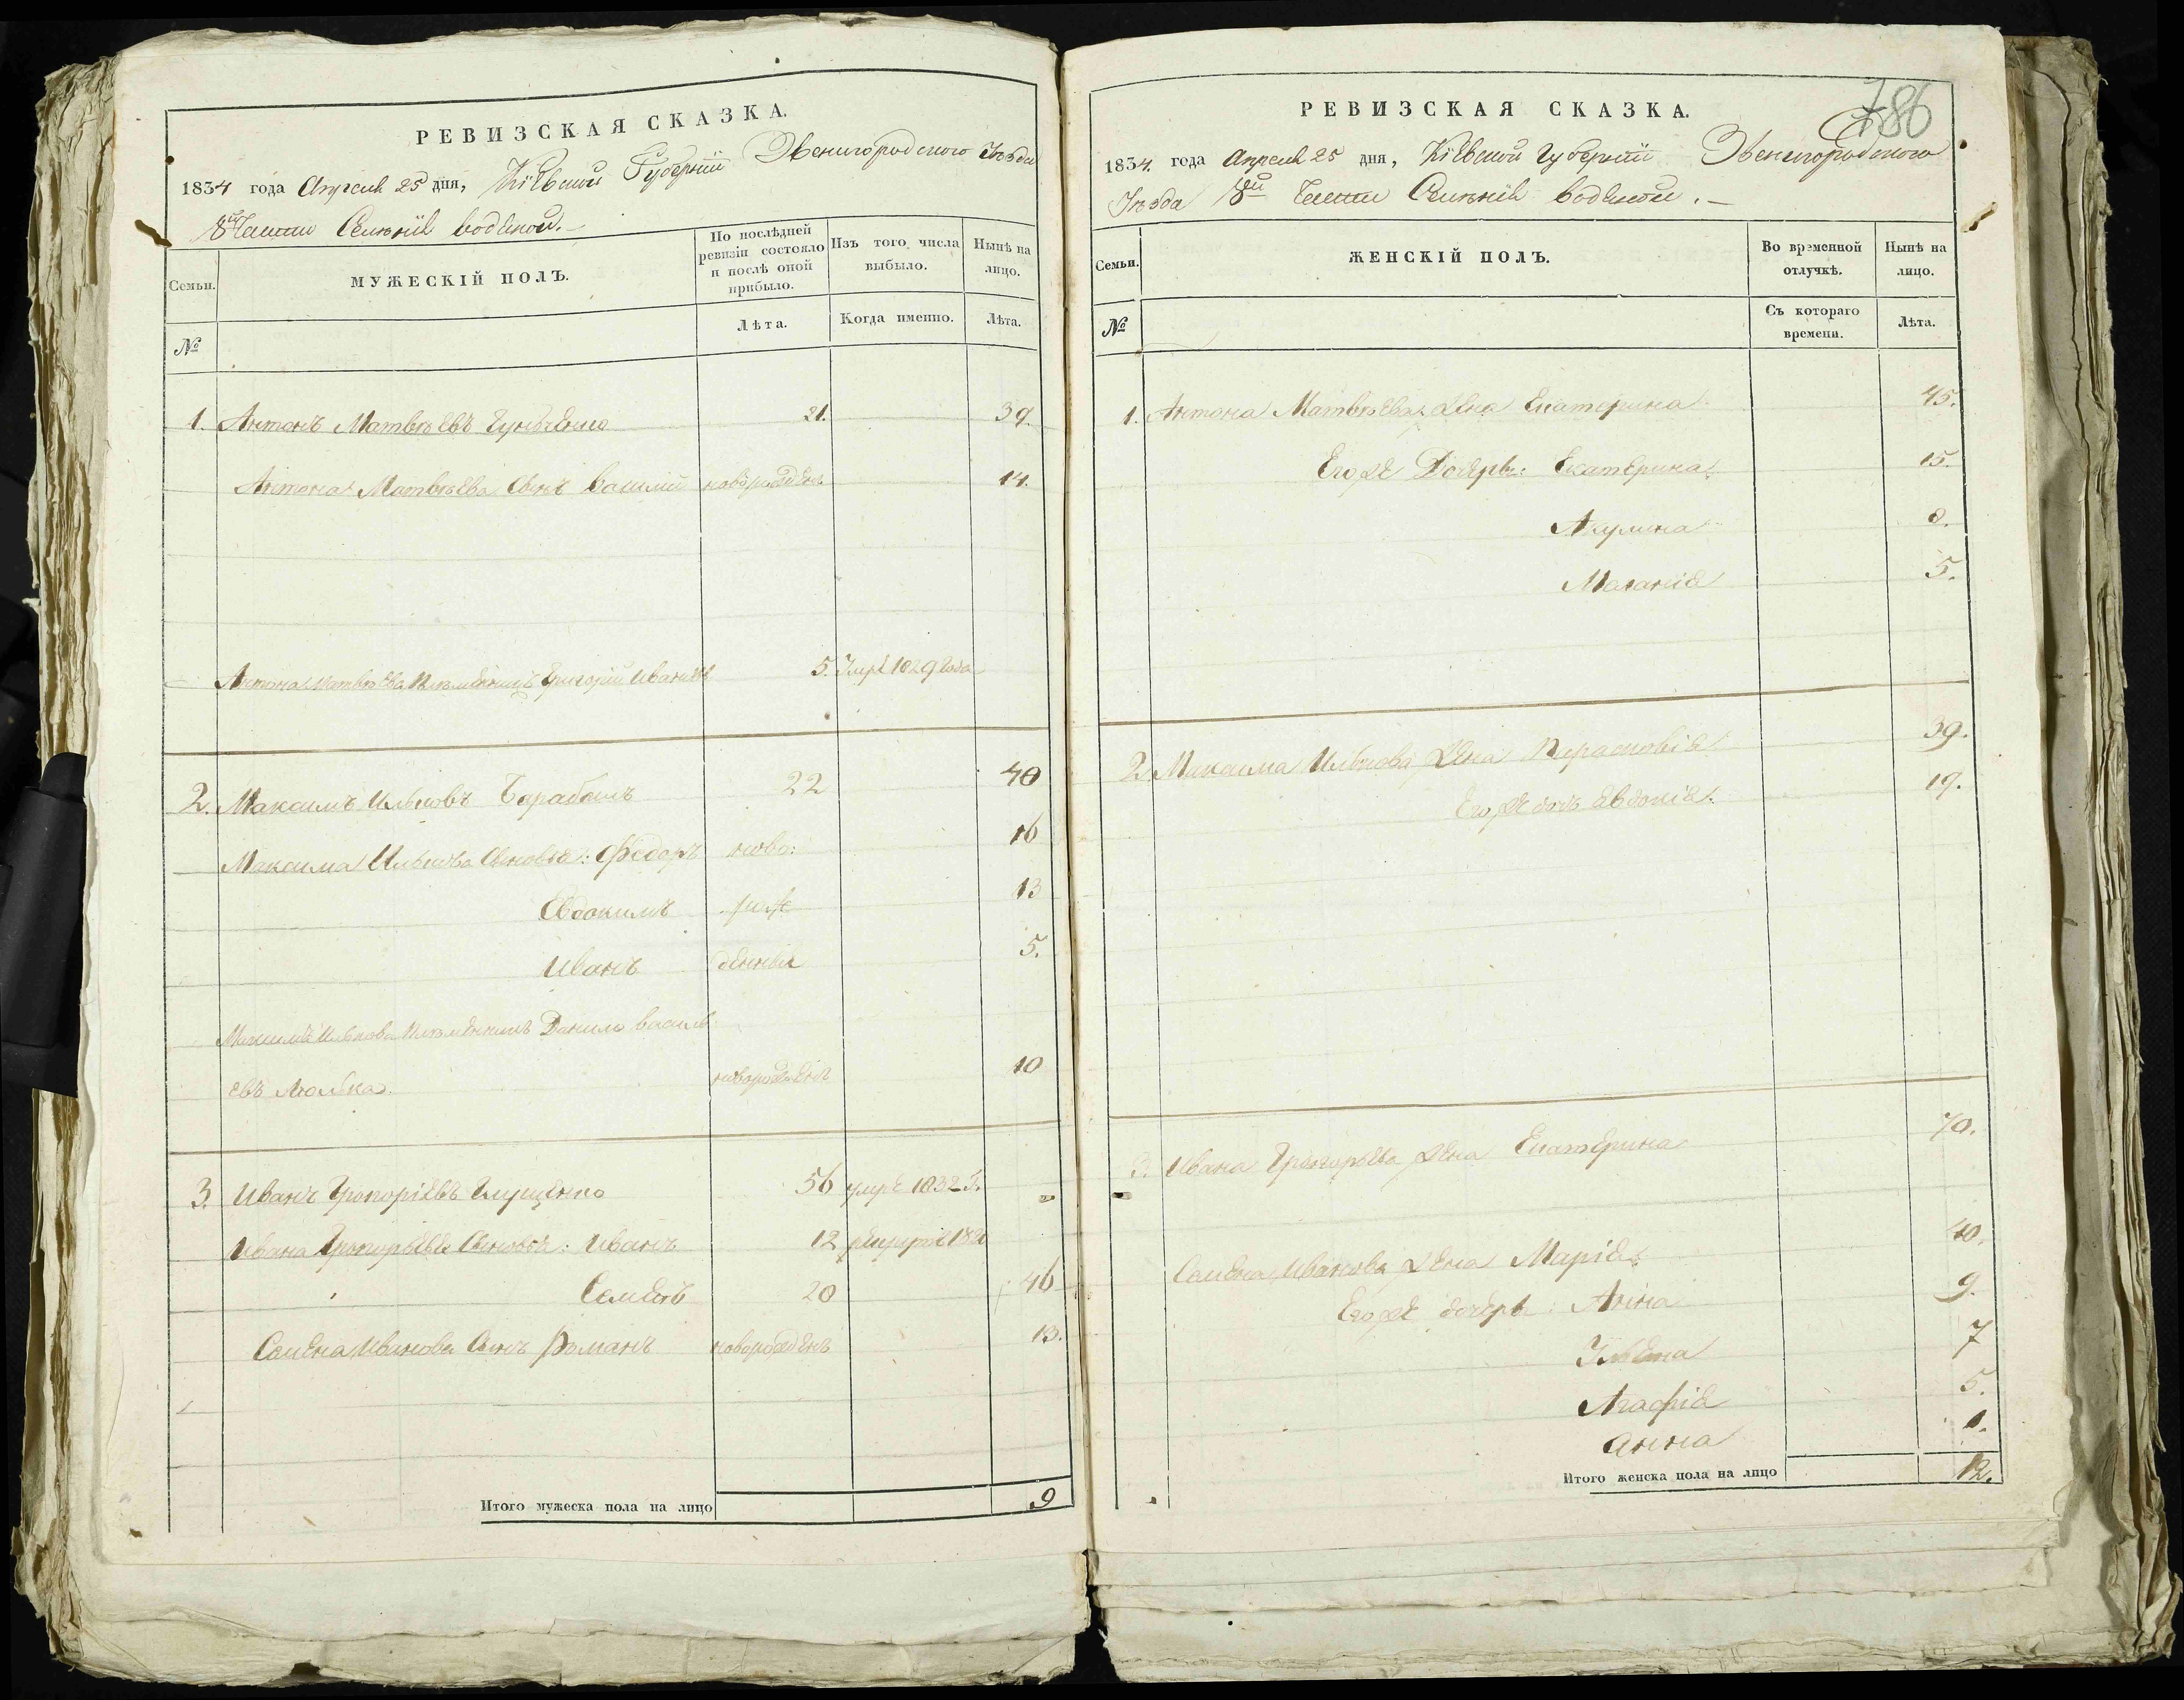 РЕВИЗСКАЯ СКАЗКА.
1834 года Апреля 25 дня, Кіевской Губерніи Звенигородского Уезда
Части Селенія Водяной.
Семьи.
МУЖЕСКІЙ ПОЛЪ.
По послѣдней ревизіи состояло и послѣ оной прибыло.
Изъ того числа выбыло.
Нынѣ на лицо.
№
Лѣта.
Когда именно.
Лѣта.
1. Антонъ Матвѣевъ 21. 39.
Антона Матвѣева Сынъ Василій новорожденъ 14.
Антона Матвѣева племенникъ Григорій Ивановъ 5. Умре 1829 года
2. Максимъ Ильковъ Барабашъ 22 40
Максима Илькова Сыновья: Федоръ ново: 16
Евдокимъ рож 13
Иванъ денныя 5.
Максима Илькова племенникъ Данило Василь
евъ Люлька. новорожденъ 10
3. Иванъ Григоріевъ Глущенко 56 умре 1832 Г.
Ивана Григорьева Сыновья: Иванъ 12
Семенъ 20 46
Семена Иванова Сынъ Романъ новорожденъ 13.
Итого мужеска пола на лицо 9
786
РЕВИЗСКАЯ СКАЗКА.
1834. года Апреля 25 дня, Кіевской Губерніи Звенигородского
Уезда 8й Части Селенія Водяной.
Семьи.
ЖЕНСКІЙ ПОЛЪ.
Во временной отлучкѣ.
Нынѣ на лицо.
№
Съ котораго времени.
Лѣта.
1. Антона Матвѣева жена Екатерина 45.
Его же Дочерь: Екатерина 15.
Акулина 8.
Маланія 5.
2. Максима Илькова жена Парасковія 39.
Его же дочь Евдокія 19.
3. Ивана Григорьева жена Екатерина 70.
Семена Иванова жена Марія 40.
Его же дочерь: Анна 9.
Ульяна 7
Агафія 5.
Анна 1.
Итого женска пола на лицо 12.